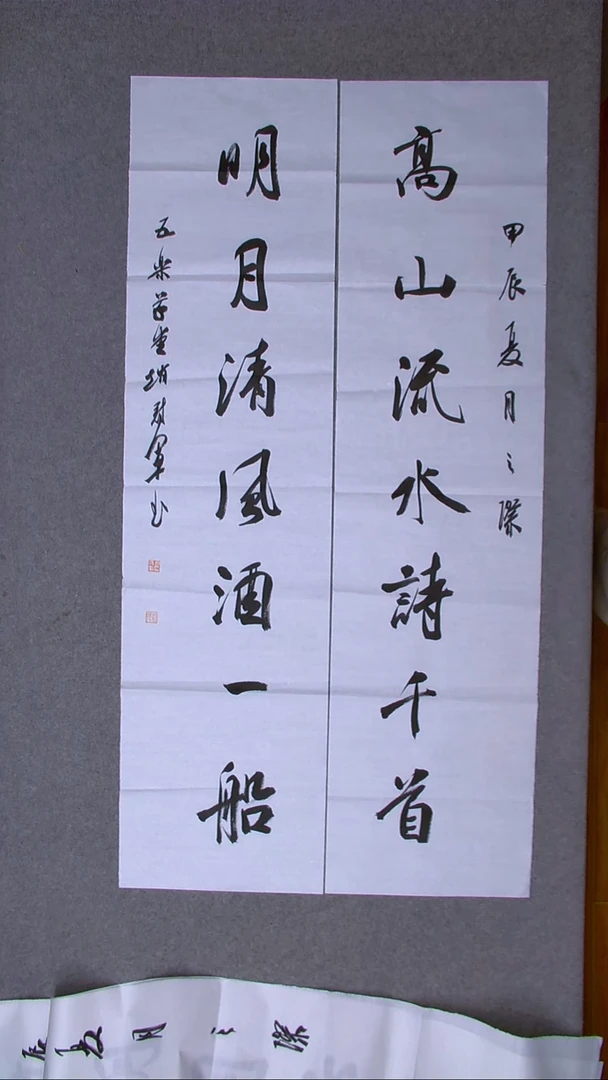 甲辰夏月之際
高山流水詩千首
明月清風酒一船
五樂草堂
軍書